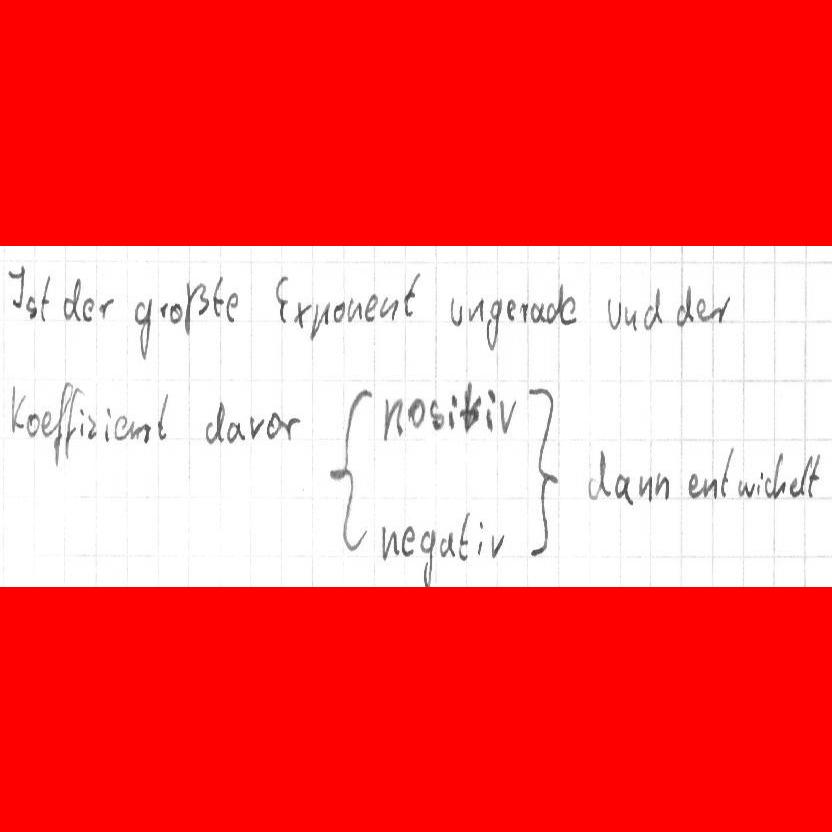 Ist der größte Exponent ungerade und der
Koeffizient davor { positiv
negativ } dann entwickelt